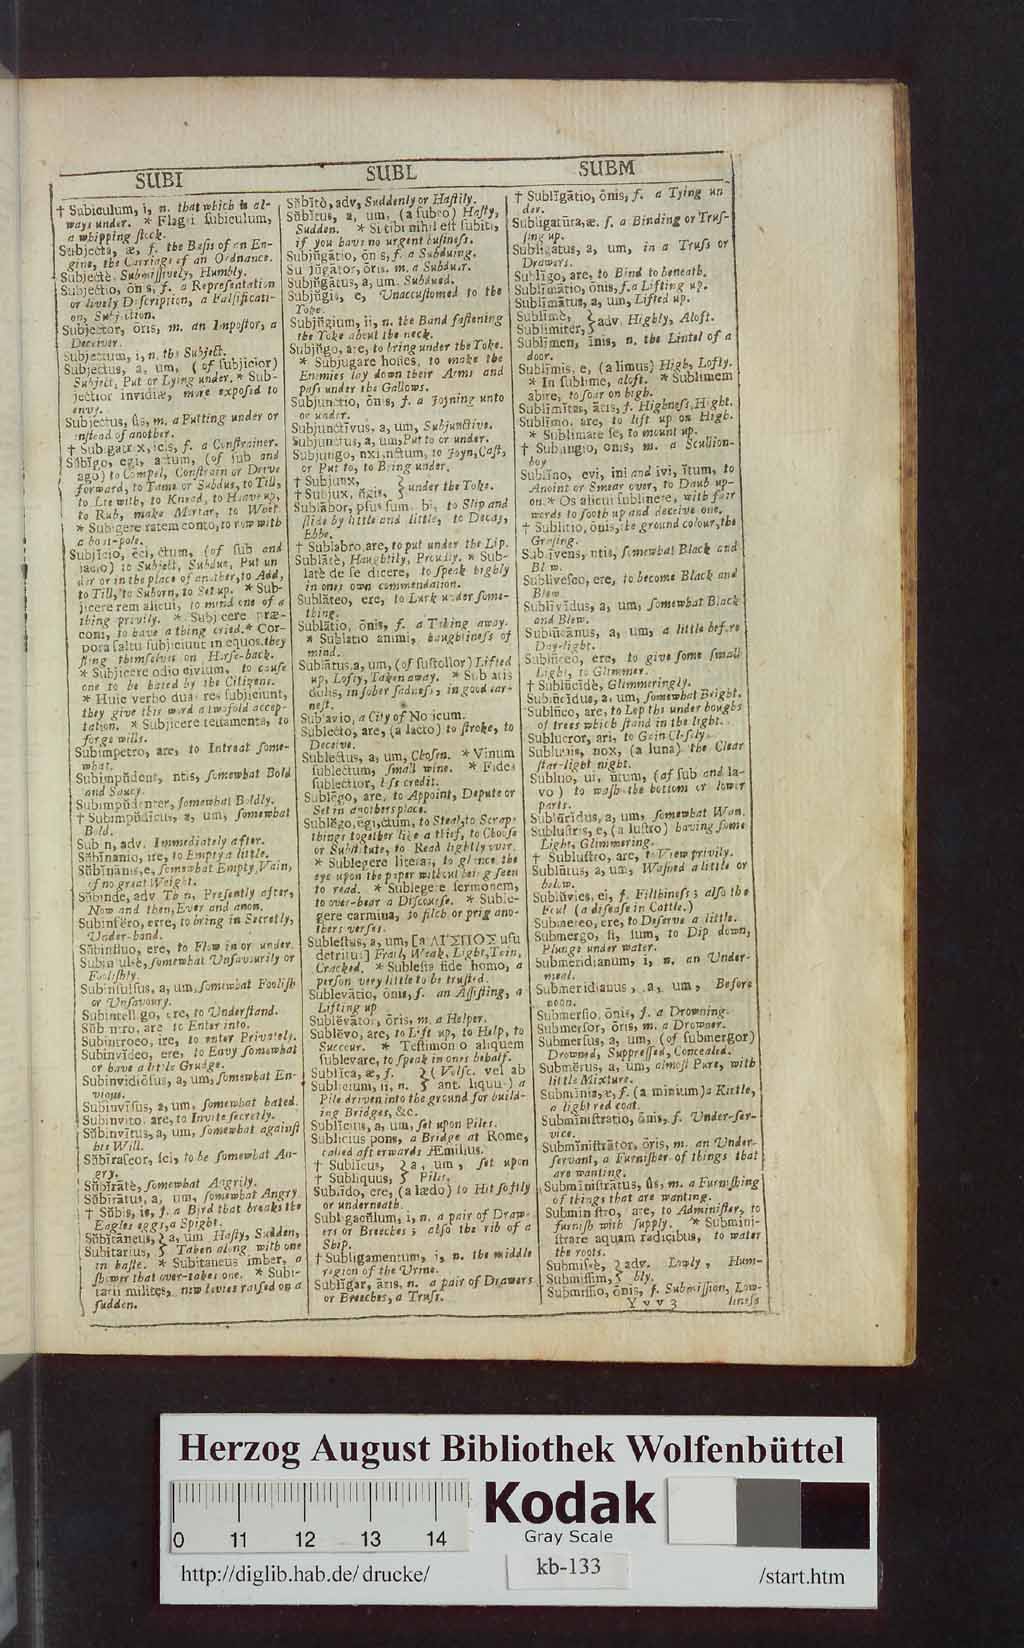 SUBI
† Subiculum, i, n. that which is al-
ways under. * Flagri ſubiculum,
a whipping ſtock.
Subjecta, æ, f. the Baſis of an En-
gine, the Carriage of an Ordnance.
Subjectè, Submiſſively, Humbly.
Subjectio, ōnis, f. a Repreſentation
or lively Deſcription, a Falſificati-
on, Subjection.
Subjector, ōris, m. an Impoſtor, a
Deceiver.
Subjectum, i, n. the Subject.
Subjectus, a, um, (of ſubjicior)
Subject, Put or Lying under. * Sub-
jectior invidiæ, more expoſed to
envy.
Subjectus, ûs, m. a Putting under or
inſtead of another.
† Subigatrix, icis, f. a Conſtrainer.
Sŭbĭgo, ēgi, actum, (of ſub and
ago) to Compel, Conſtrain or Drive
forward, to Tame or Subdue, to Till,
to Lie with, to Knead, to Heave up,
to Rub, make Mortar, to Whet.
* Subigere ratem conto, to row with
a boat-pole.
Subjĭcio, ēci, ctum, (of ſub and
jacio) to Subject, Subdue, Put un
der or in the place of another, to Add,
to Till, to Suborn, to Set up. * Sub-
jicere rem alicui, to mind one of a
thing privily. * Subjicere præ-
coni, to have a thing cried. * Cor-
pora ſaltu ſubjiciunt in equos, they
fling themſelves on Horſe-back.
* Subjicere odio civium, to cauſe
one to be hated by the Citizens.
* Huic verbo duæ res ſubjiciunt,
they give this word a twofold accep-
tation. * Subjicere teſtamenta, to
forge wills.
Subimpetro, are, to Intreat ſome-
what.
Subimpŭdens, ntis, ſomewhat Bold
and Saucy.
Subimpŭdenter, ſomewhat Boldly.
† Subimpŭdicus, a, um, ſomewhat
Bold.
Subin, adv. Immediately after.
Sŭbĭnanio, ire, to Empty a little.
Sŭbĭnānis, e, ſomewhat Empty, Vain,
of no great Weight.
Sŭbinde, adv Then, Preſently after,
Now and then, Ever and anon.
Subinfĕro, erre, to bring in Secretly,
Under-hand.
Sŭbinfluo, ere, to Flow in or under.
Subinſulsè, ſomewhat Unſavourily or
Fooliſhly.
Subinſulſus, a, um, ſomewhat Fooliſh
or Unſavoury.
Subintelligo, ere, to Underſtand.
Sŭbintro, are to Enter into.
Subintroeo, ire, to enter Privately.
Subinvĭdeo, ere, to Envy ſomewhat
or have a little Grudge.
Subinvidiōſus, a, um, ſomewhat En-
vious.
Subinvīſus, a, um, ſomewhat hated.
Subinvito, are, to Invite ſecretly.
Sŭbinvītus, a, um, ſomewhat againſt
his Will.
Sŭbīraſcor, ſci, to be ſomewhat An-
gry.
Sŭbīrātè, ſomewhat Angrily.
Sŭbīrātus, a, um, ſomewhat Angry
† Sŭbis, is, f. a Bird that breaks the
Eagles eggs, a Spight.
Sŭbĭtāneus, } a, um Haſty, Sudden,
Subitarius, } Taken along with one
in haſte. * Subitaneus imber, a
ſhower that over-takes one. * Subi-
tarii milites, new levies raiſed on a
ſudden.
SUBL
Sŭbĭtò, adv, Suddenly or Haſtily.
Sŭbĭtus, a, um, (a ſubeo) Haſty,
Sudden. * Si tibi nihil eſt ſubiti,
if you have no urgent buſineſs.
Subjŭgātio, ōnis, f. a Subduing.
Subjŭgātor, ōris. m. a Subduer.
Subjŭgātus, a, um. Subdued.
Subjŭgis, e, Unaccuſtomed to the
Yoke.
Subjŭgium, ii, n. the Band faſtening
the Yoke about the neck.
Subjŭgo, are, to bring under the Yoke.
* Subjugare hoſtes, to make the
Enemies lay down their Arms and
paſs under the Gallows.
Subjunctio, ōnis, f. a Joyning unto
or under.
Subjunctīvus, a, um, Subjunctive.
Subjunctus, a, um, Put to or under.
Subjungo, nxi, nctum, to Joyn, Caſt,
or Put to, to Bring under.
† Subjunx, }
† Subjux, ŭgis, } under the Yoke.
Sublābor, pſus ſum, bi, to Slip and
ſlide by little and little, to Decay,
Ebbe.
† Sublabro, are, to put under the Lip.
Sublātè, Haughtily, Proudly. * Sub-
latè de ſe dicere, to ſpeak highly
in ones own commendation.
Sublăteo, ere, to Lurk under ſome-
thing.
Sublātio, ōnis, f. a Taking away.
* Sublatio animi, haughtineſs of
mind.
Sublātus, a, um, (of ſuſtollor) Lifted
up, Lofty, Taken away. * Sublatis
dolis, in ſober ſadneſs, in good ear-
neſt.
Sublavio, a City of Noricum.
Sublecto, are, (a lacto) to ſtroke, to
Deceive.
Sublectus, a, um, Choſen. * Vinum
ſublectum, ſmall wine. * Fides
ſublectior, leſs credit.
Sublēgo, are, to Appoint, Depute or
Set in anothers place.
Sublĕgo, ēgi, ctum, to Steal, to Scrape
things together like a thief, to Chooſe
or Subſtitute, to Read lightly over.
* Sublegere literas, to glance the
eye upon the paper without being ſeen
to read. * Sublegere ſermonem,
to over-hear a Diſcourſe. * Suble-
gere carmina, to filch or prig ano-
thers verſes.
Subleſtus, a, um, [a ΛΙΣΠΟΣ uſu
detritus] Frail, Weak, Light, Thin,
Cracked. * Subleſta fide homo, a
perſon very little to be truſted.
Sublevātio, ōnis, f. an Aſſiſting, a
Lifting up.
Sublĕvātor, ōris, m. a Helper.
Sublĕvo, are, to Lift up, to Help, to
Succour. * Teſtimonio aliquem
ſublevare, to ſpeak in ones behalf.
Sublĭca, æ, f. } (Volſc. vel ab
Sublicium, ii, n. } ant. liquu-) a
Pile driven into the ground for build-
ing Bridges, &c.
Sublĭcius, a, um, ſet upon Piles.
Sublicius pons, a Bridge at Rome,
called afterwards Æmilius.
† Sublicus, } a, um, ſet upon
† Subliquus, } Piles.
Sublīdo, ere, (a lædo) to Hit ſoftly
or underneath.
Subligacŭlum, i, n. a pair of Draw-
ers or Breeches; alſo the rib of a
Ship.
† Subligamentum, i, n. the middle
region of the Urine.
Sublĭgar, āris, n. a pair of Drawers
or Breeches, a Truſs.
SUBM
† Sublĭgātio, ōnis, f. a Tying un
der.
Subligatūra, æ. f. a Binding or Truſ-
ſing up.
Subligatus, a, um, in a Truſs or
Drawers.
Sublĭgo, are, to Bind to beneath.
Sublīmātio, ōnis, f. a Lifting up.
Sublīmātus, a, um, Lifted up.
Sublīmè, }
Sublīmiter, } adv. Highly, Aloft.
Sublīmen, ĭnis, n. the Lintel of a
door.
Sublīmis, e, (a limus) High, Lofty.
* In ſublime, aloft. * Sublimem
abire, to ſoar on high.
Sublīmĭtas, ātis, f. Highneſs, Hight.
Sublīmo, are, to lift up on High.
* Sublimare ſe, to mount up.
† Sublingio, onis, m. a Scullion-
boy
Sublĭno, evi, ini and ivi, ĭtum, to
Anoint or Smear over, to Daub up-
on. * Os alicui ſublinere, with fair
words to ſooth up and deceive one.
† Sublitio, ōnis, the ground colour, the
Greſing.
Sublīvens, ntis, ſomewhat Black and
Blew.
Subliveſco, ere, to become Black and
Blew
Sublīvĭdus, a, um, ſomewhat Black
and Blew.
Sublūcānus, a, um, a little before
Day-light.
Sublūceo, ere, to give ſome ſmall
Light, to Glimmer.
† Sublūcĭdè, Glimmeringly.
Sublūcĭdus, a, um, ſomewhat Bright.
Sublūco, are, to Lop the under boughs
of trees which ſtand in the light.
Sublucror, ari, to Gain Cloſely.
Sublunis, nox, (a luna) the Clear
ſtar-light night.
Subluo, ui, ŭtum, (of ſub and la-
vo) to waſh the bottom or lower
parts.
Sublūrĭdus, a, um, ſomewhat Wan.
Subluſtris, e, (a luſtro) having ſome
Light, Glimmering.
† Subluſtro, are, to View privily.
Sublūtus, a, um, Waſhed a little or
below.
Sublūvies, ei, f. Filthineſs; alſo the
Foul (a diſeaſe in Cattle.)
Submereo, ere, to Deſerve a little.
Submergo, ſi, ſum, to Dip down,
Plunge under water.
Submeridianum, i, n. an Under-
meal.
Submeridianus, a, um, Before
noon.
Submerſio, ōnis, f. a Drowning.
Submerſor, ōris, m. a Drowner.
Submerſus, a, um, (of ſubmergor)
Drowned, Suppreſſed, Concealed.
Submĕrus, a, um, almoſt Pure, with
little Mixture.
Submĭnia, æ, f. (a minium) a Kirtle,
a light red coat.
Subminiſtratio, ōnis, f. Under-ſer-
vice.
Submĭniſtrātor, ōris, m. an Under-
ſervant, a Furniſher of things that
are wanting.
Submĭniſtrātus, ûs, m. a Furniſhing
of things that are wanting.
Subminiſtro, are, to Adminiſter, to
furniſh with ſupply. * Submini-
ſtrare aquam radicibus, to water
the roots.
Submiſsè, } adv. Lowly, Hum-
Submiſſim, } bly.
Submiſſio, ōnis, f. Submiſſion, Low-
Yvv3 lineſs
Herzog August Bibliothek Wolfenbüttel
0 11 12 13 14
Kodak
Gray Scale
http://diglib.hab.de/drucke/ kb-133 /start.htm